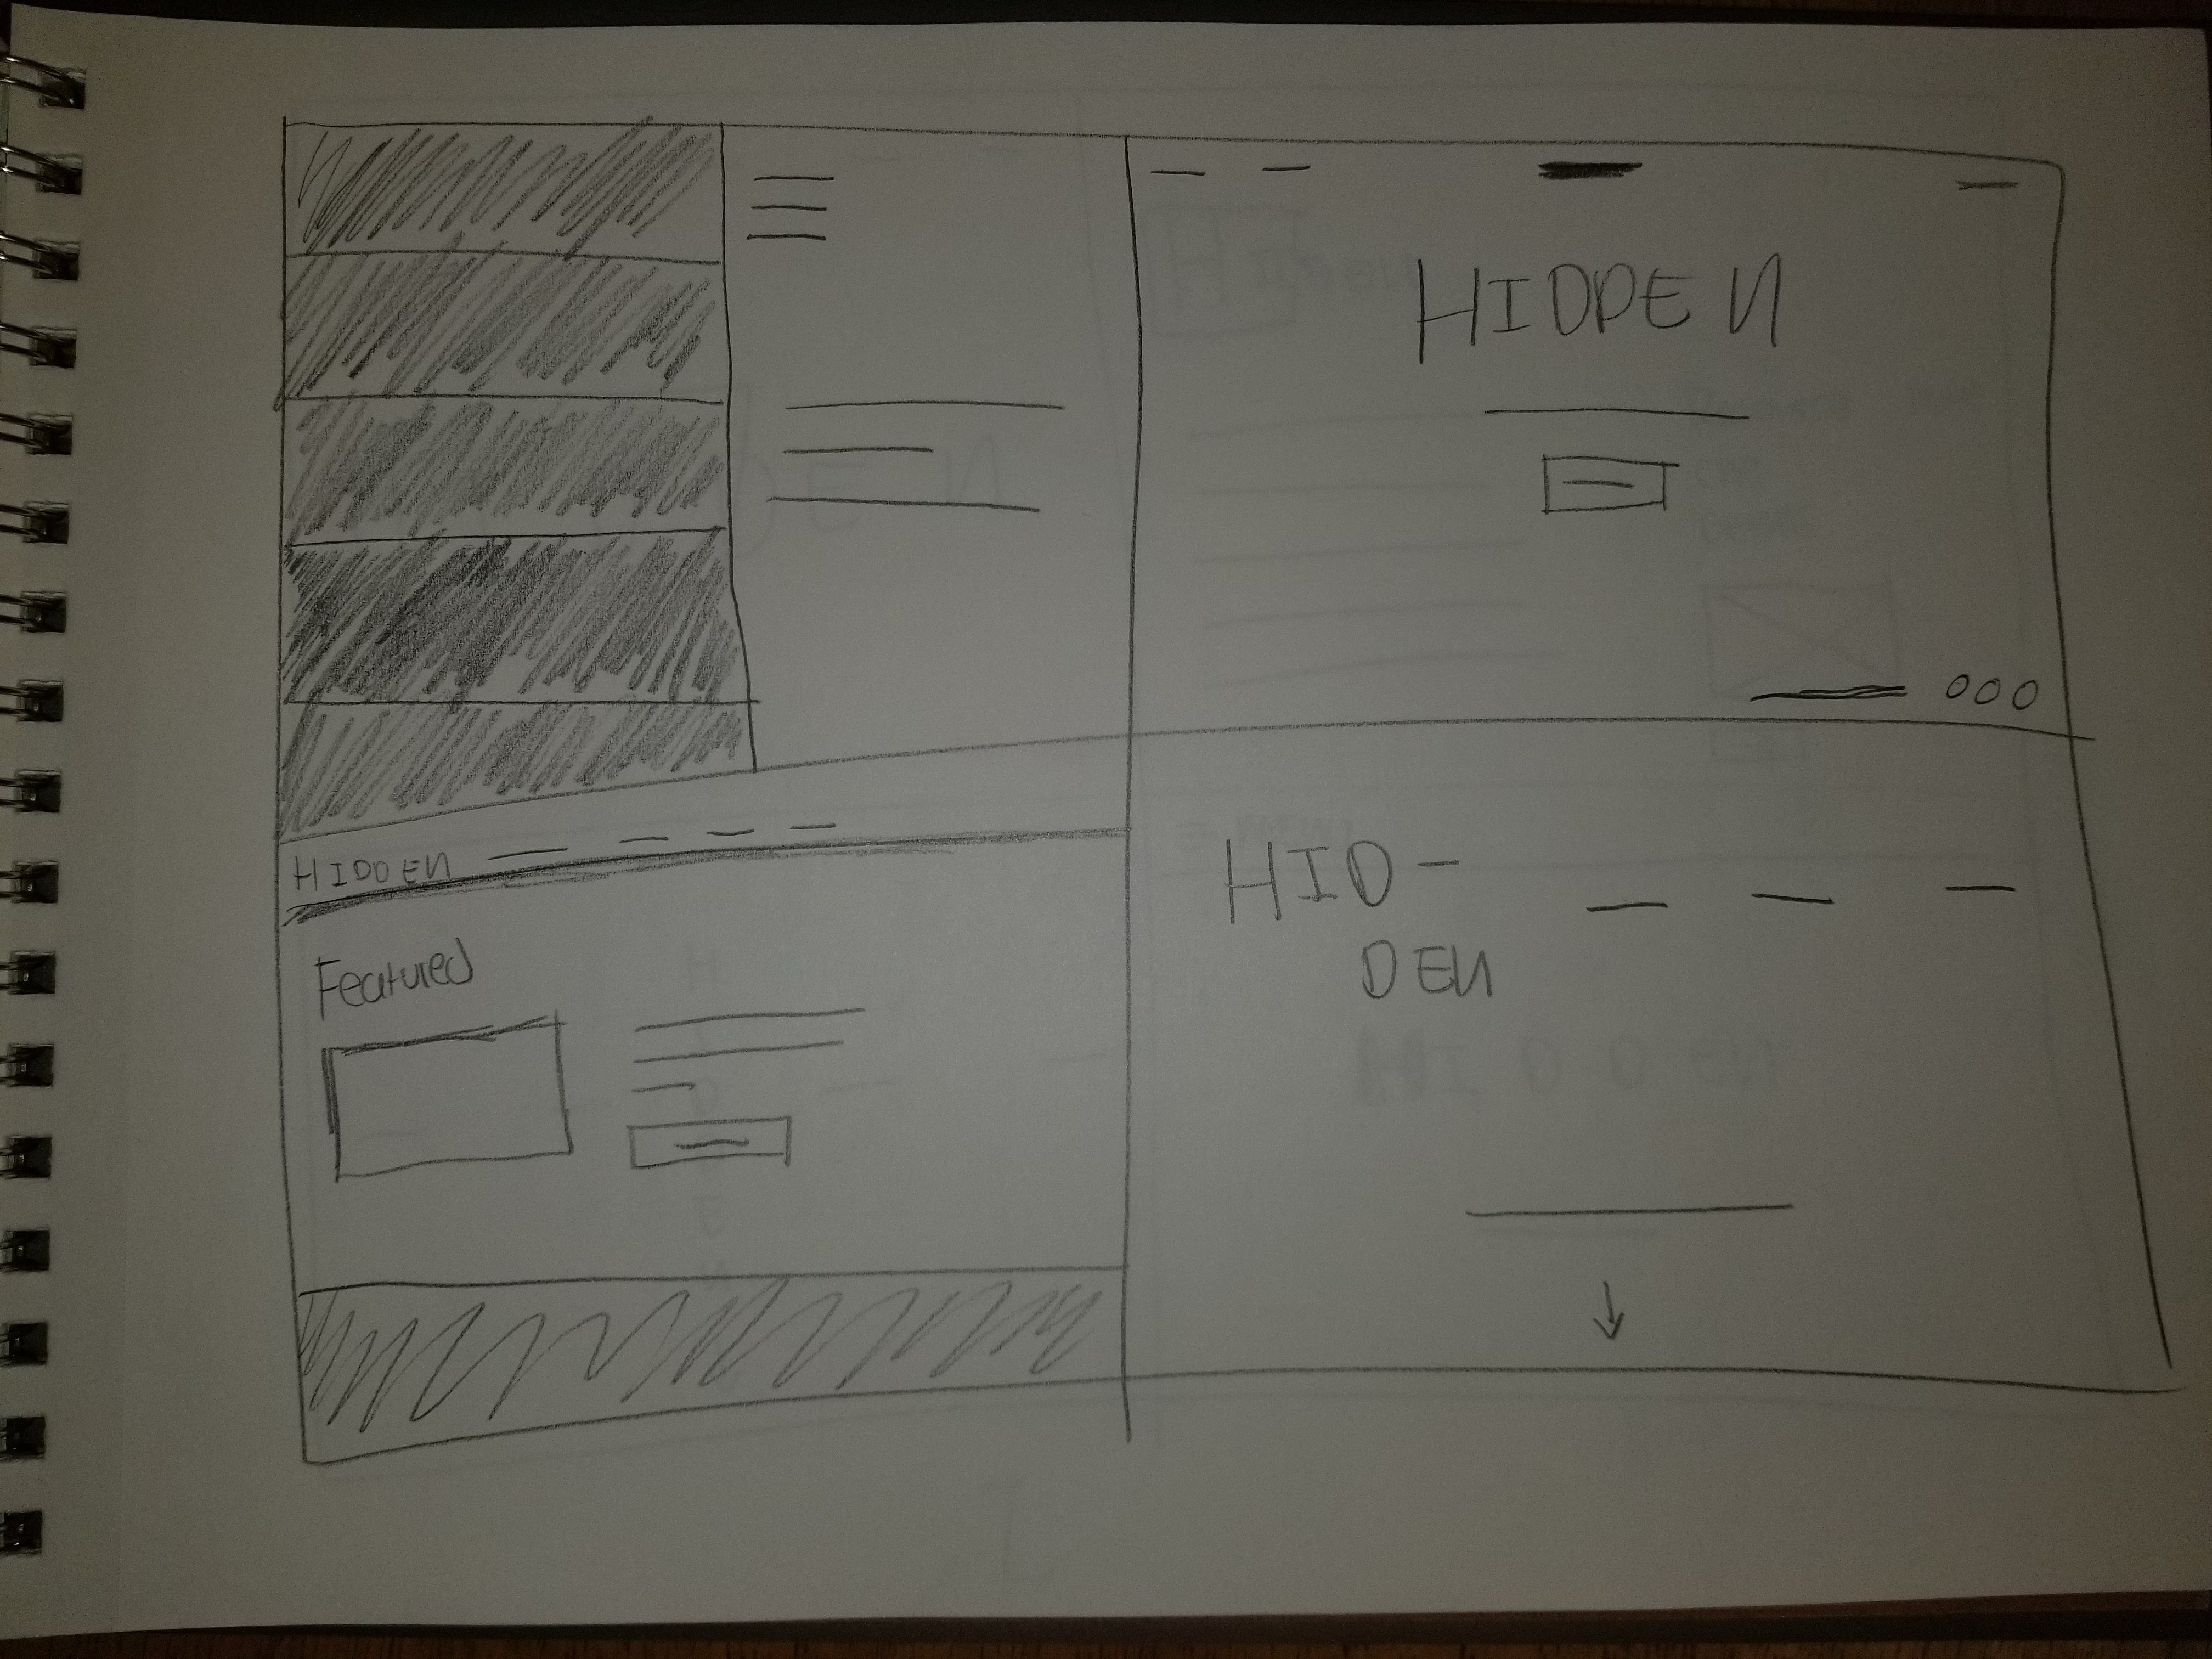 HIDDEN
HIDDEN
Featured
HID-
DEN